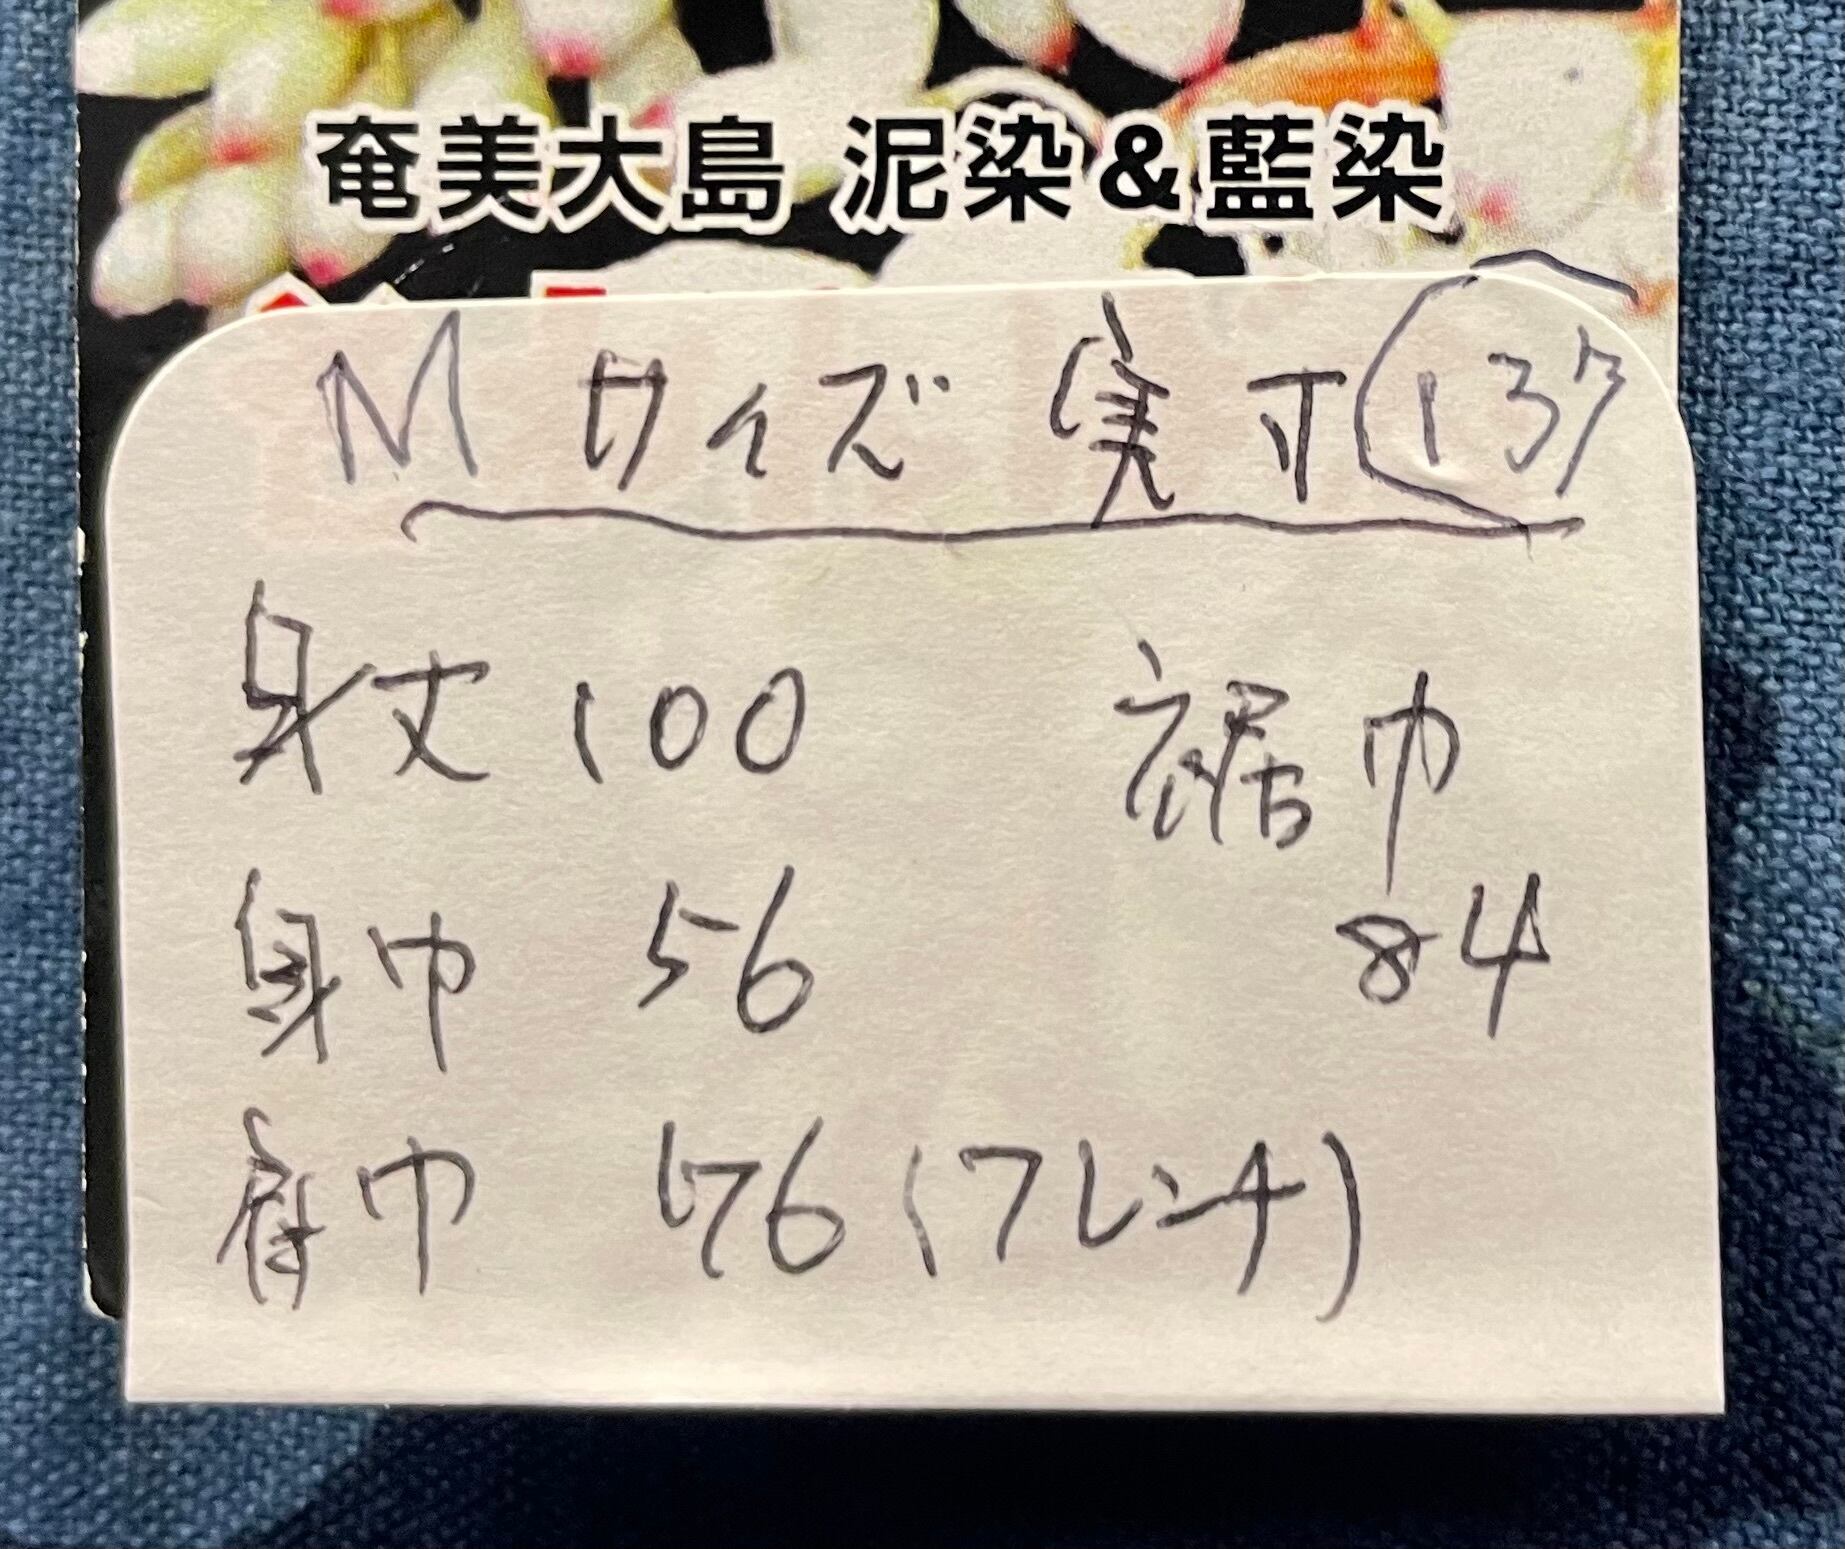 奄美大島 泥染&藍染
Mサイズ 実寸 137
身丈 100
裾巾
身巾 56
84
肩巾 56 (フレンチ)